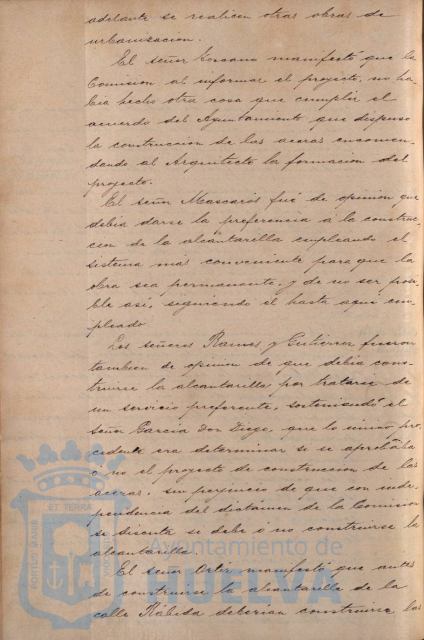 adelante se realicen otras obras de
urbanizacion.
El señor Toscano manifestó que la
Comision al informar el proyecto, no ha-
bia hecho otra cosa que cumplir el
acuerdo del Ayuntamiento que dispuso
la construccion de las aceras encomen-
dando al Arquitecto la formacion del
proyecto.
El señor Mascarós fué de opinion que
debia darse la preferencia á la construc-
cion de la alcantarilla empleando el
sistema más conveniente para que la
obra sea permanente, y de no ser posi-
ble asi, siguiendo el hasta aqui em-
pleado
Los señores Ramos y Gutierrez fueron
tambien de opinion de que debia cons-
truirse la alcantarilla, por tratarse de
un servicio preferente, sosteniendo el
señor Garcia don Diego, que lo unico pro-
cedente era determinar si se aprobaba
ó no el proyecto de construccion de las
aceras, sin perjuicio de que con inde-
pendencia del dictamen de la Comision
se discuta si debe ó no construirse la
alcantarilla
El señor Ortiz manifestó que antes
de construirse la alcantarilla de la
calle Rábida deberian construirse las
ET TERRA
Ayuntamiento de
HUELVA